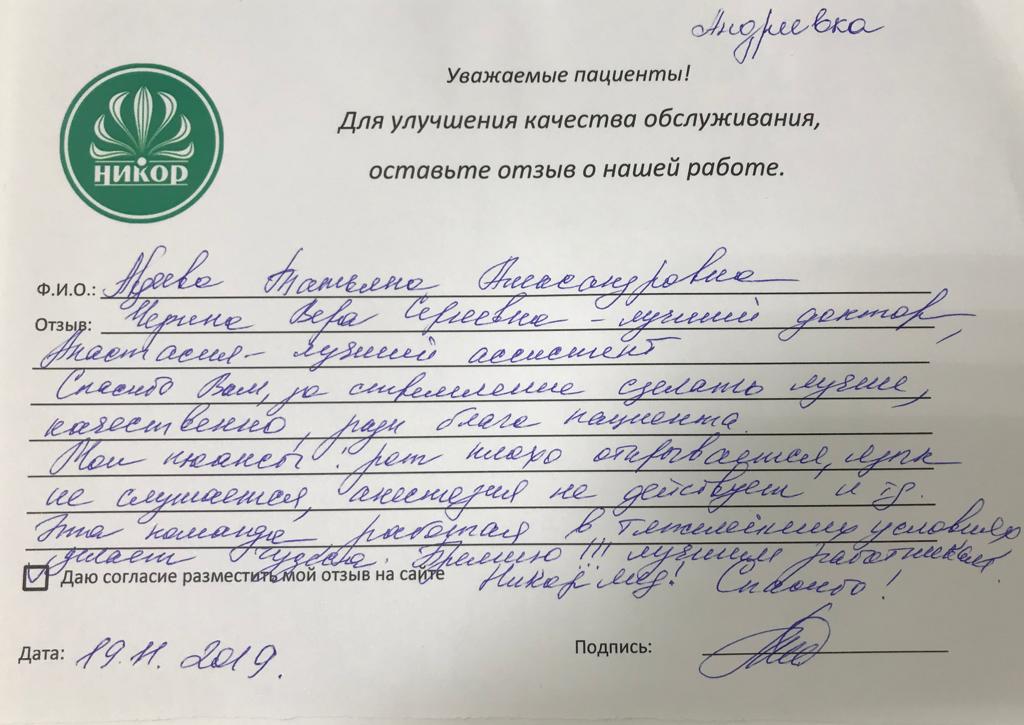 Андреевка
Уважаемые пациенты!
Для улучшения качества обслуживания,
оставьте отзыв о нашей работе.
НИКОР
Ф.И.О.: Татьяна Александровна
Отзыв: Вера Сергеевна - лучший доктор,
Анастасия - лучший ассистент
Спасибо Вам, за стремление сделать лучше,
качественно, ради блага пациента.
Мои нюансы: рот плохо открывается, язык
не слушается, анестезия не действует и тд.
Эта команда, работая в тяжелейших условиях
делает чудеса. Премию!!! лучшим работникам
Никор мед! Спасибо!
Даю согласие разместить мой отзыв на сайте
Дата: 19.11.2019.
Подпись: